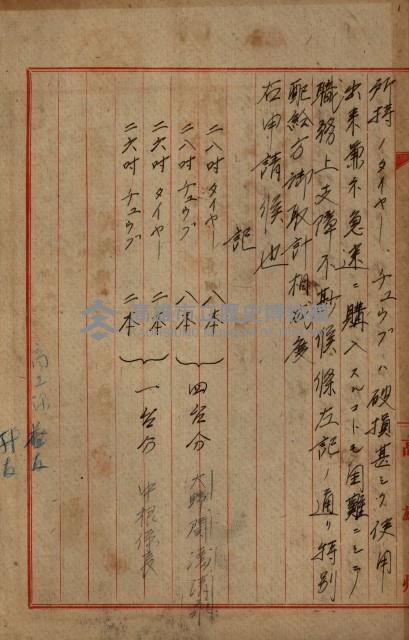 所持ノタイヤー、チユウブハ破損甚シク使用
出来兼ネ急速ニ購入スルコトモ困難ニシテ
職務上支障不尠候條左記ノ通リ特別
配給方御取計相成度
右申請候也
記
二八吋タイヤー 八本
二八吋チユウブ 八本 四台分
二六吋タイヤー 二本
二六吋チユウブ 二本 一台分 中根係長
高雄市立歷史博物館